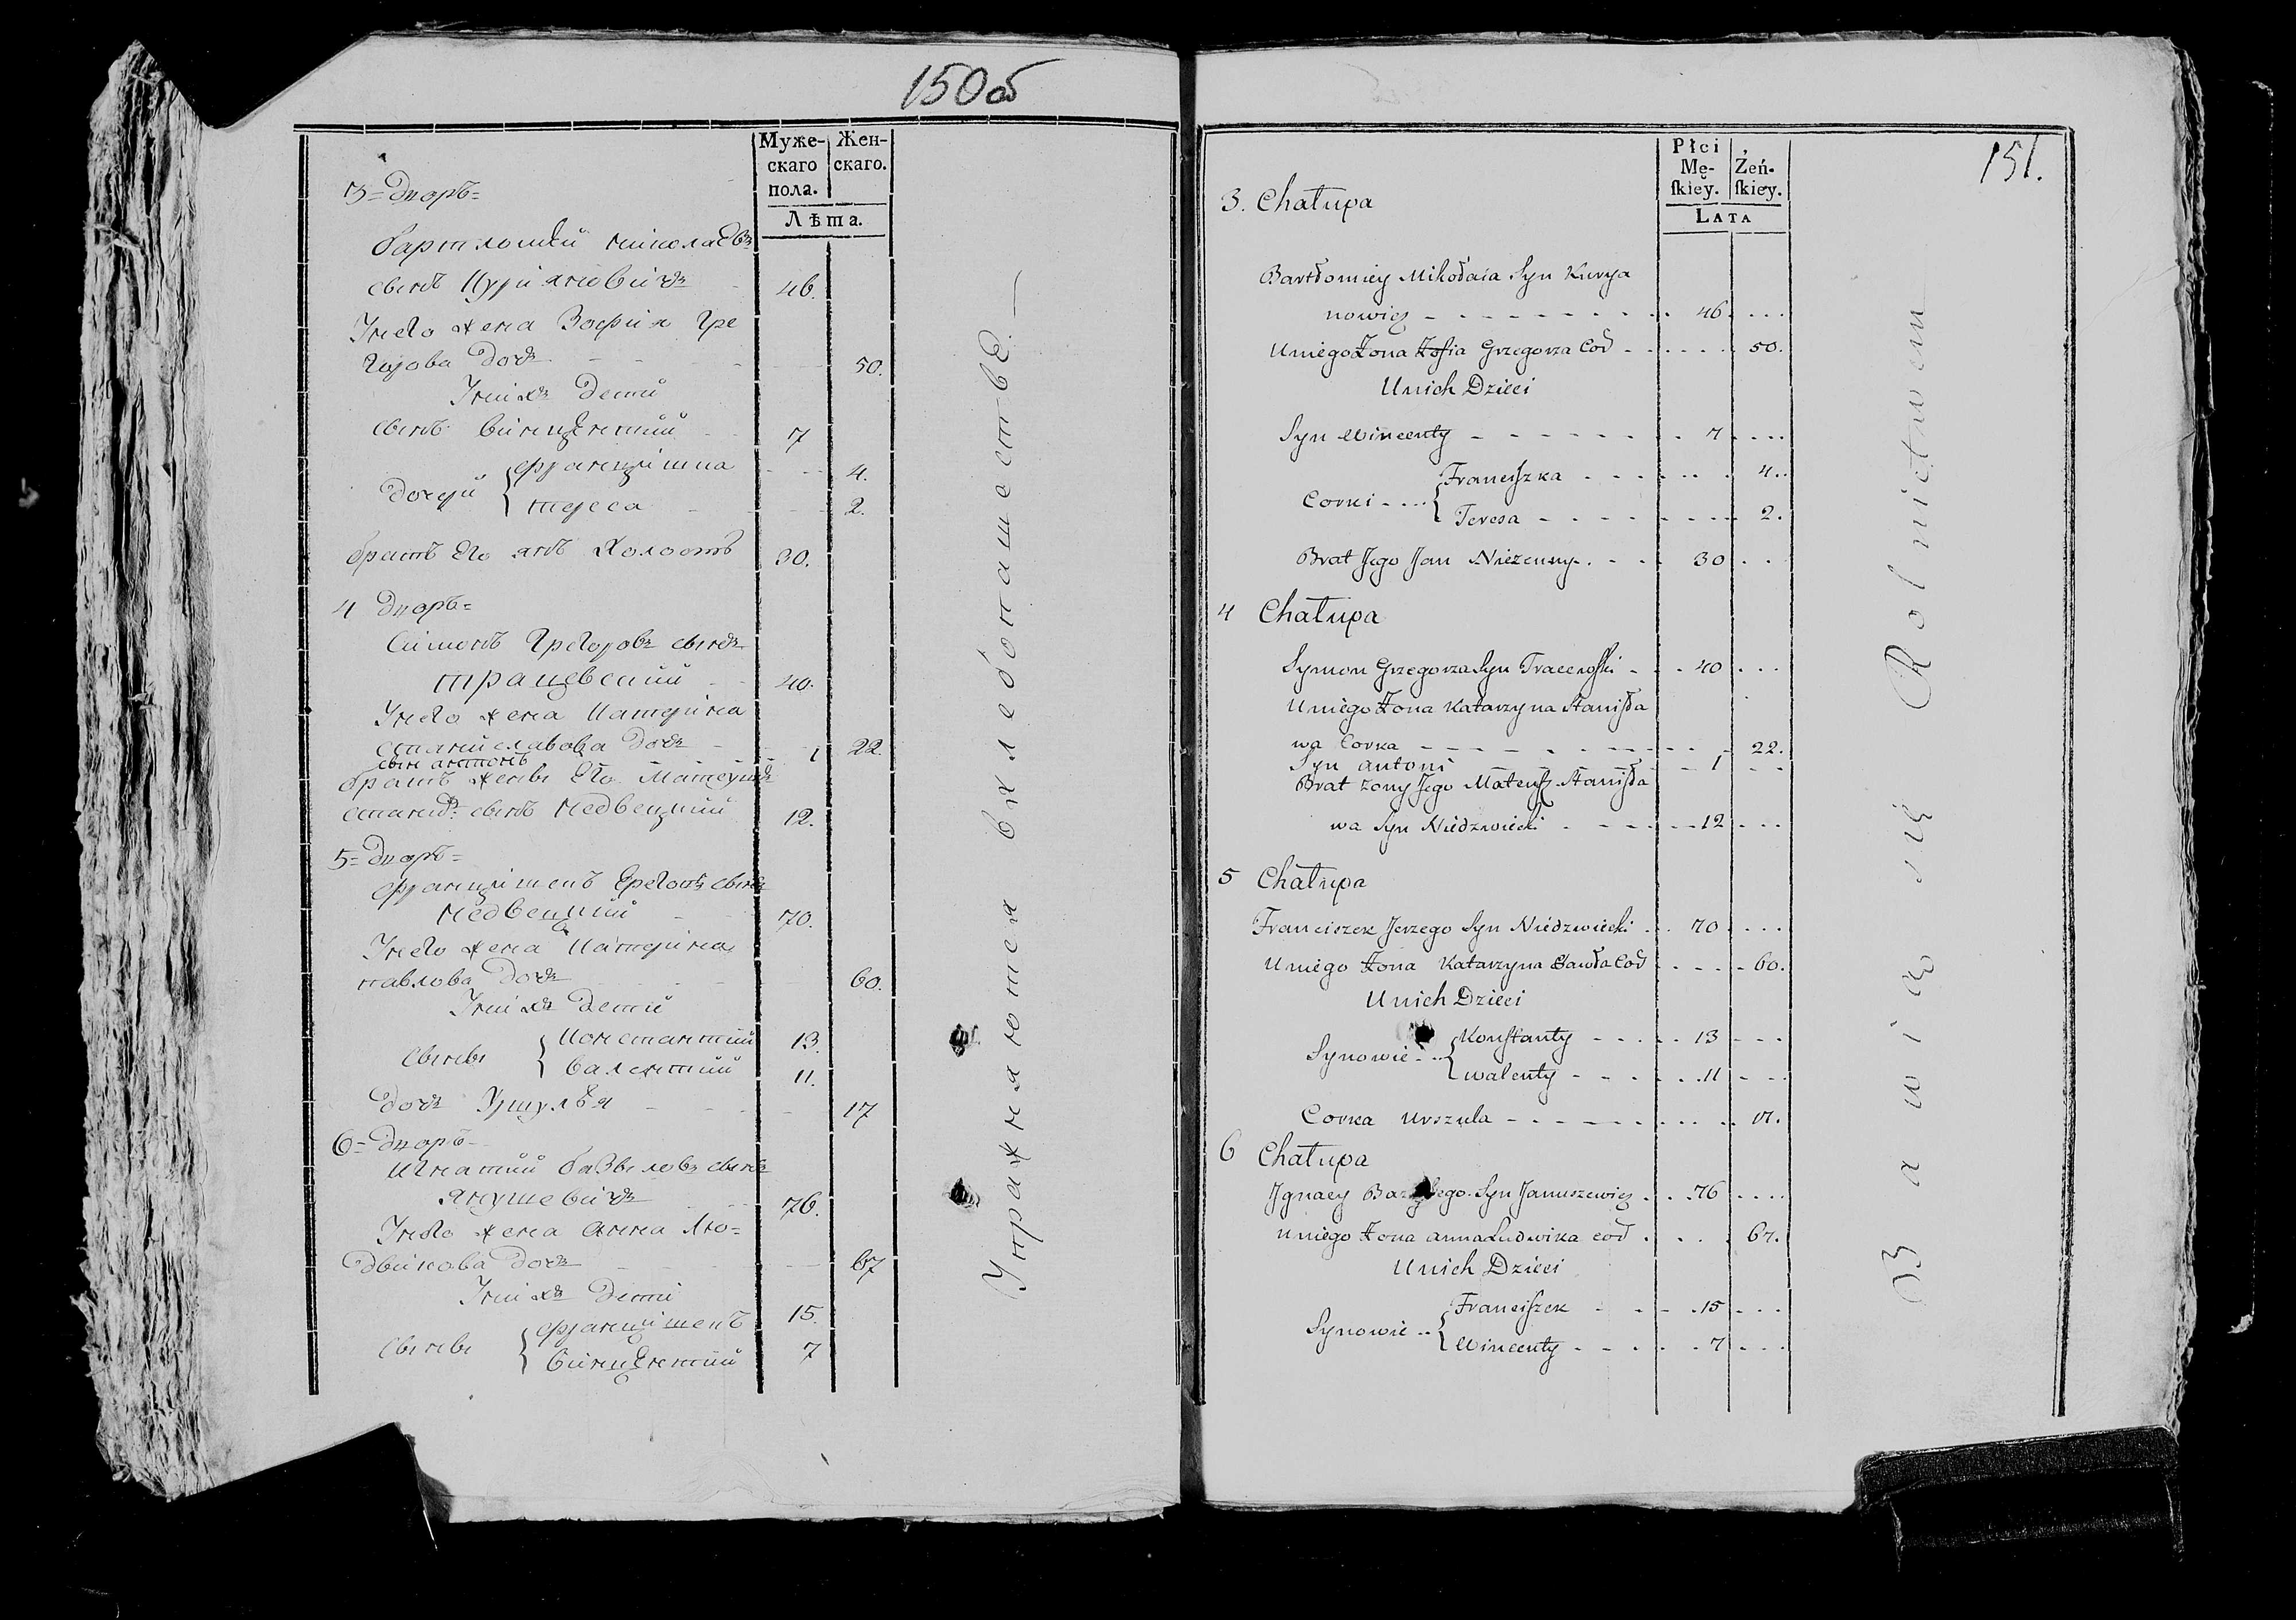 150об
Муже- Жен-
скаго скаго.
пола.
Лѣта.
3= Дворъ=
бартломей миколаевъ
сынъ Курjановичъ 46.
Унего жена Зофия Гре
горова дочь 50.
Унихъ дети
сынъ винцентий 7
дочери { францишка 4.
тереса 2.
братъ его янъ холостъ 30.
4 Дворъ=
Симонъ Грегоровъ сынъ
трацевский 40.
Унего жена Катерина
станиславова дочь 22.
сынъ антонъ 1
братъ жены его Матеушъ
станис: сынъ Недвецкий 12.
5= Дворъ=
францишекъ сынъ
Недвецкий 70.
Унего жена Катерина
павлова дочь 60.
Унихъ дети
сыны { Константий 13.
валентий 11.
дочь Уршуля 17
6= Дворъ=
Игнатий базылевъ сынъ
Янушевичъ 76.
Унего жена Анна Лю=
двикова дочь 67
Унихъ дети
сыны { францишекъ 15.
винцентий 7
Упражняются вхлебопашестве.—
151.
Płci
Mę- Żeń-
ſkiey. ſkiey.
LATA
3. Chałupa
Bartłomiey Mikołaia Syn Kurya
nowicz - - - 46 . . .
Uniego Żona Zofia Grzegorza Cod - . . . 50.
Unich Dzieci
Syn Wincenty - - - 7 . . .
Corki - . . { Franciſzka - - . . . 4.
Teresa - - - 2.
Brat Jego Jan Nieżenny. . - . 30 . . .
4 Chałupa
Symon Grzegorza Syn Traceroſki - . . 40 . . .
Uniego Żona Katarzyna Staniſła
wa Corka - - - 22.
Syn antoni - - - 1 - -
Brat żony Jego Mateuſz Staniſła
wa Syn Niedzwiecki . - - - 12 . . .
5 Chałupa
Franciszek Jerzego Syn Niedzwiecki . . 70 . . .
Uniego Żona Katarzyna Pawła Cod . . - 60.
Unich Dzieci
Synowie . . { Konſtanty - - - 13 - - -
Walenty - - - 11 - - -
Corka Urszula - - - 17.
6 Chałupa
Jgnacy Bazylego Syn Januszewicz . . 76 . . .
Uniego Żona anna Ludwika cod . . . 67.
Unich Dzieci
Synowie . . { Franciſzek - - - 15 . . .
Wincenty - - - 7 . . .
Bawią się Rolnictwem